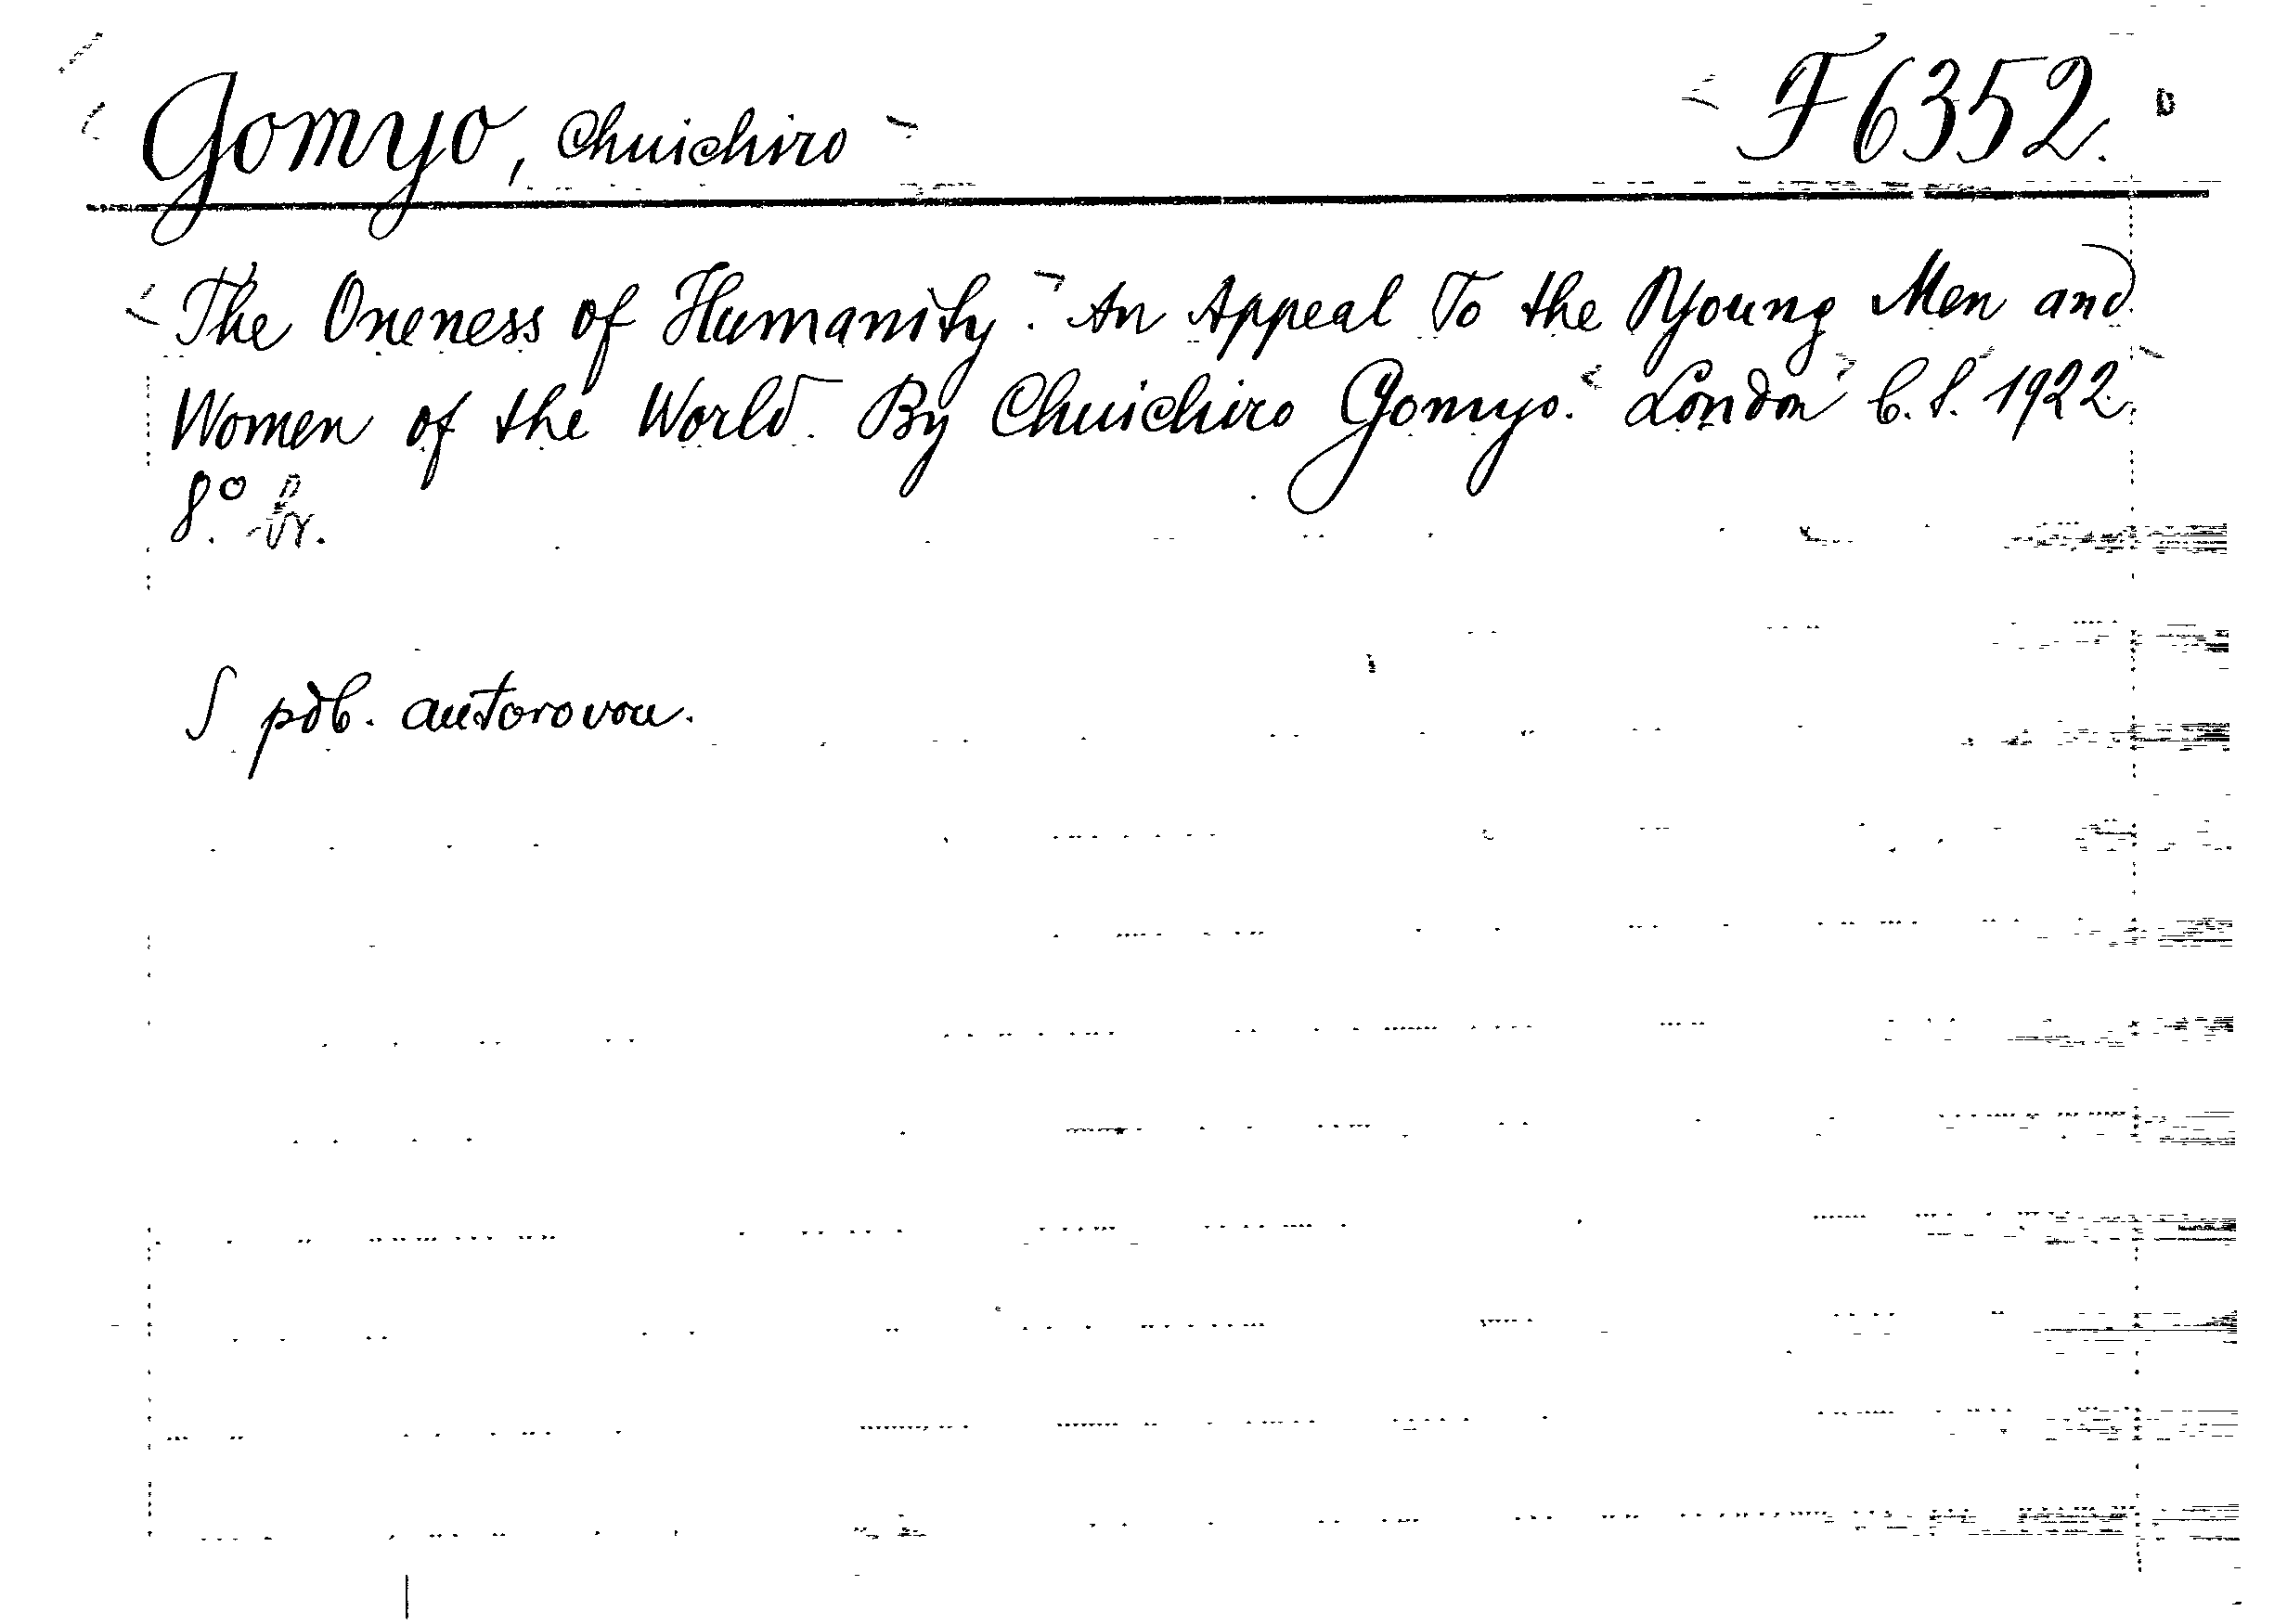 Gomyo, Chuichiro F 6352.
The Oneness of Humanity. An Appeal To the Young Men and
Women of the World. By Chuichiro Gomyo. London b. s. 1922.
8°. br.
S pdb. autorovou.